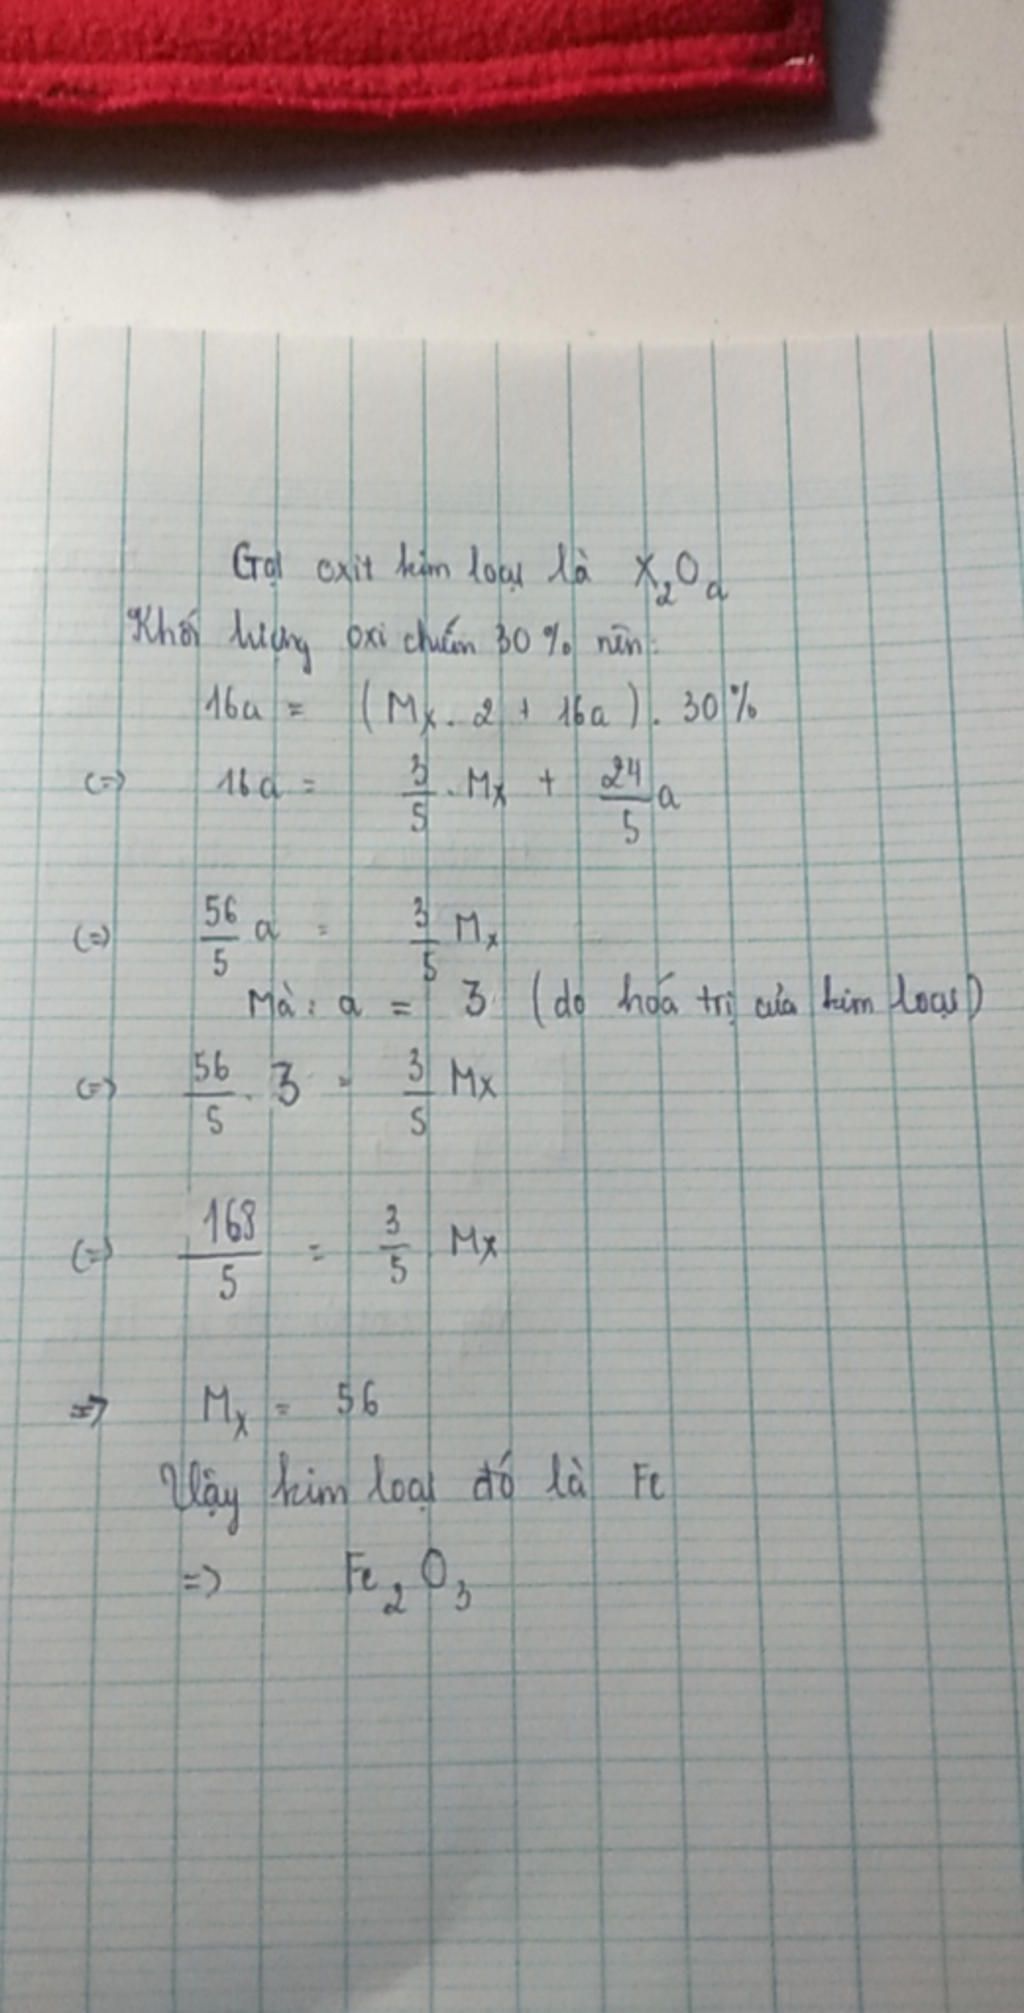 Gọi oxit kim loại là X₂Oₐ
Khối lượng oxi chiếm 30% nên:
16a = (Mx . 2 + 16a) . 30%
(=) 16a = 3/5 . Mx + 24/5 a
(=) 56/5 a = 3/5 Mx
Mà : a = 3 (do hoá trị của kim loại)
(=) 56/5 . 3 = 3/5 Mx
(=) 168/5 = 3/5 Mx
=> Mx = 56
Vậy kim loại đó là Fe
=> Fe₂O₃